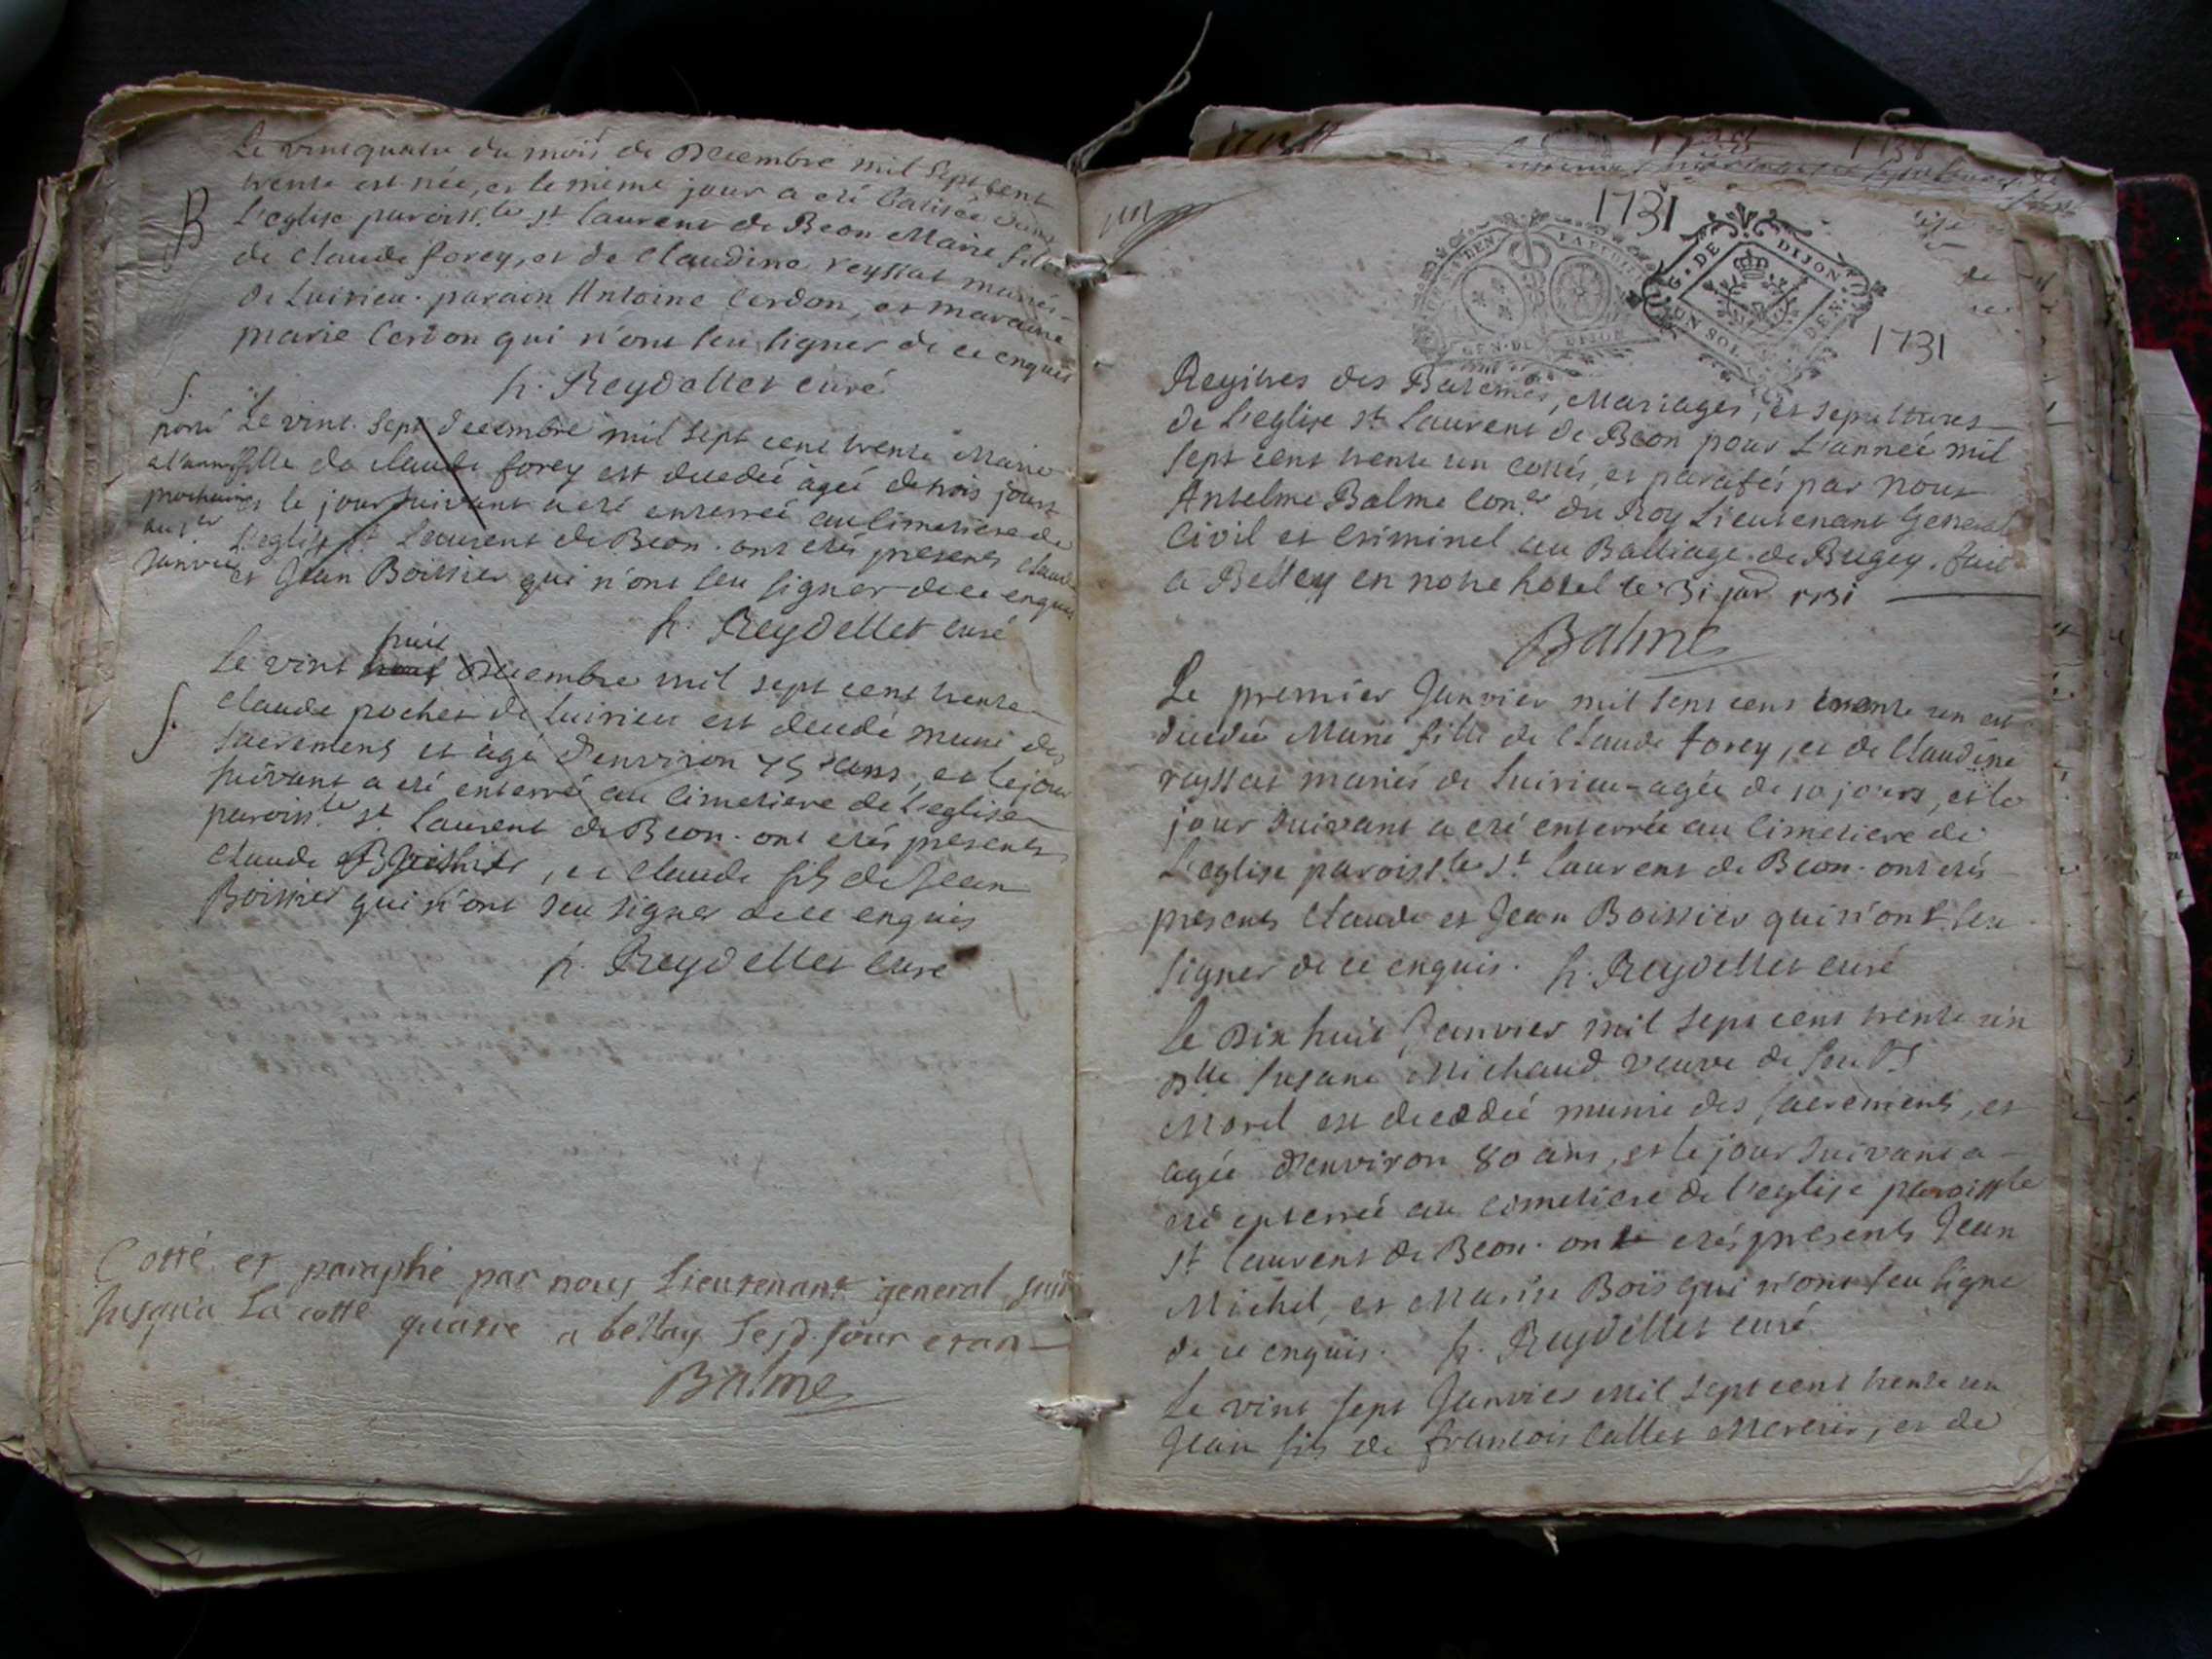 Le vint quatre du mois de Decembre mil sept cent
trente est née, et le même jour a eté batisée dans
B
L'eglise paroiss.le st laurent de Beon Marie fille
de Claude forey, et de Claudine reyssat mariés
de Luirieu. parain Antoine Cerdon, et maraine
marie Cerdon qui n'ont seu signer de ce enquis
h. Reydellet curé
S.
porté
a l'année
prochaine
au 1er
Janvier
Le vint sept decembre mil sept cent trente Marie
fille de claude forey est decedée agée de trois jours
et le jour suivant a eté enterrée au Cimetiere de
L'eglise st Laurent de Beon. ont etés presents Claude
et Jean Boissier qui n'ont seu signer de ce enquis
h. Reydellet curé
huit
Le vint Decembre mil sept cent trente
S.
Claude pochet de Luirieu est decedé muni des
sacremens et agé d'environ 75 ans, et le jour
suivant a eté enterré au Cimetiere de L'eglise
paroiss.le st Laurent de Beon. ont etés presents
Claude, et Claude fils de Jean
Boissier qui n'ont seu signer de ce enquis
h. Reydellet curé
Cotté et paraphé par nous Lieutenant general
Jusqu'a La cotte quatre a bellay Lesd. jour et an
Balme
1731
G. DE DIJON
UN SOL
GEN. DE DIJON
1731
Regitres des Batemes, Mariages, et sepultures
de L'eglise st Laurent de Beon pour L'année mil
sept cent trente un cottés, et parafés par nous
Antelme Balme Con.er du Roy Lieutenant General
Civil et Criminel au Balliage de Bugey. fait
a Belley en notre hotel le 31 1731
Balme
Le premier Janvier mil sept cent trente un est
decedée Marie fille de Claude forey, et de Claudine
reyssat mariés de Luirieu agée de 10 jours, et le
jour suivant a eté enterrée au Cimetiere de
L'eglise paroiss.le st laurent de Beon. ont etés
presents Claude et Jean Boissier qui n'ont seu
signer de ce enquis. h. Reydellet curé
Le Dix huit Janvier mil sept cent trente un
Dlle Susane Michaud veuve de feu Sr
Morel est decedée munie des sacremens, et
agée d'environ 80 ans, et le jour suivant a
eté enterrée au cimetiere de l'eglise paroissle
st laurent de Beon. ont etés presents Jean
Michel, et Bois qui n'ont seu signe
de ce enquis. h. Reydellet curé
Le vint sept Janvier mil sept cent trente un
Jean fils de francois Callet et de